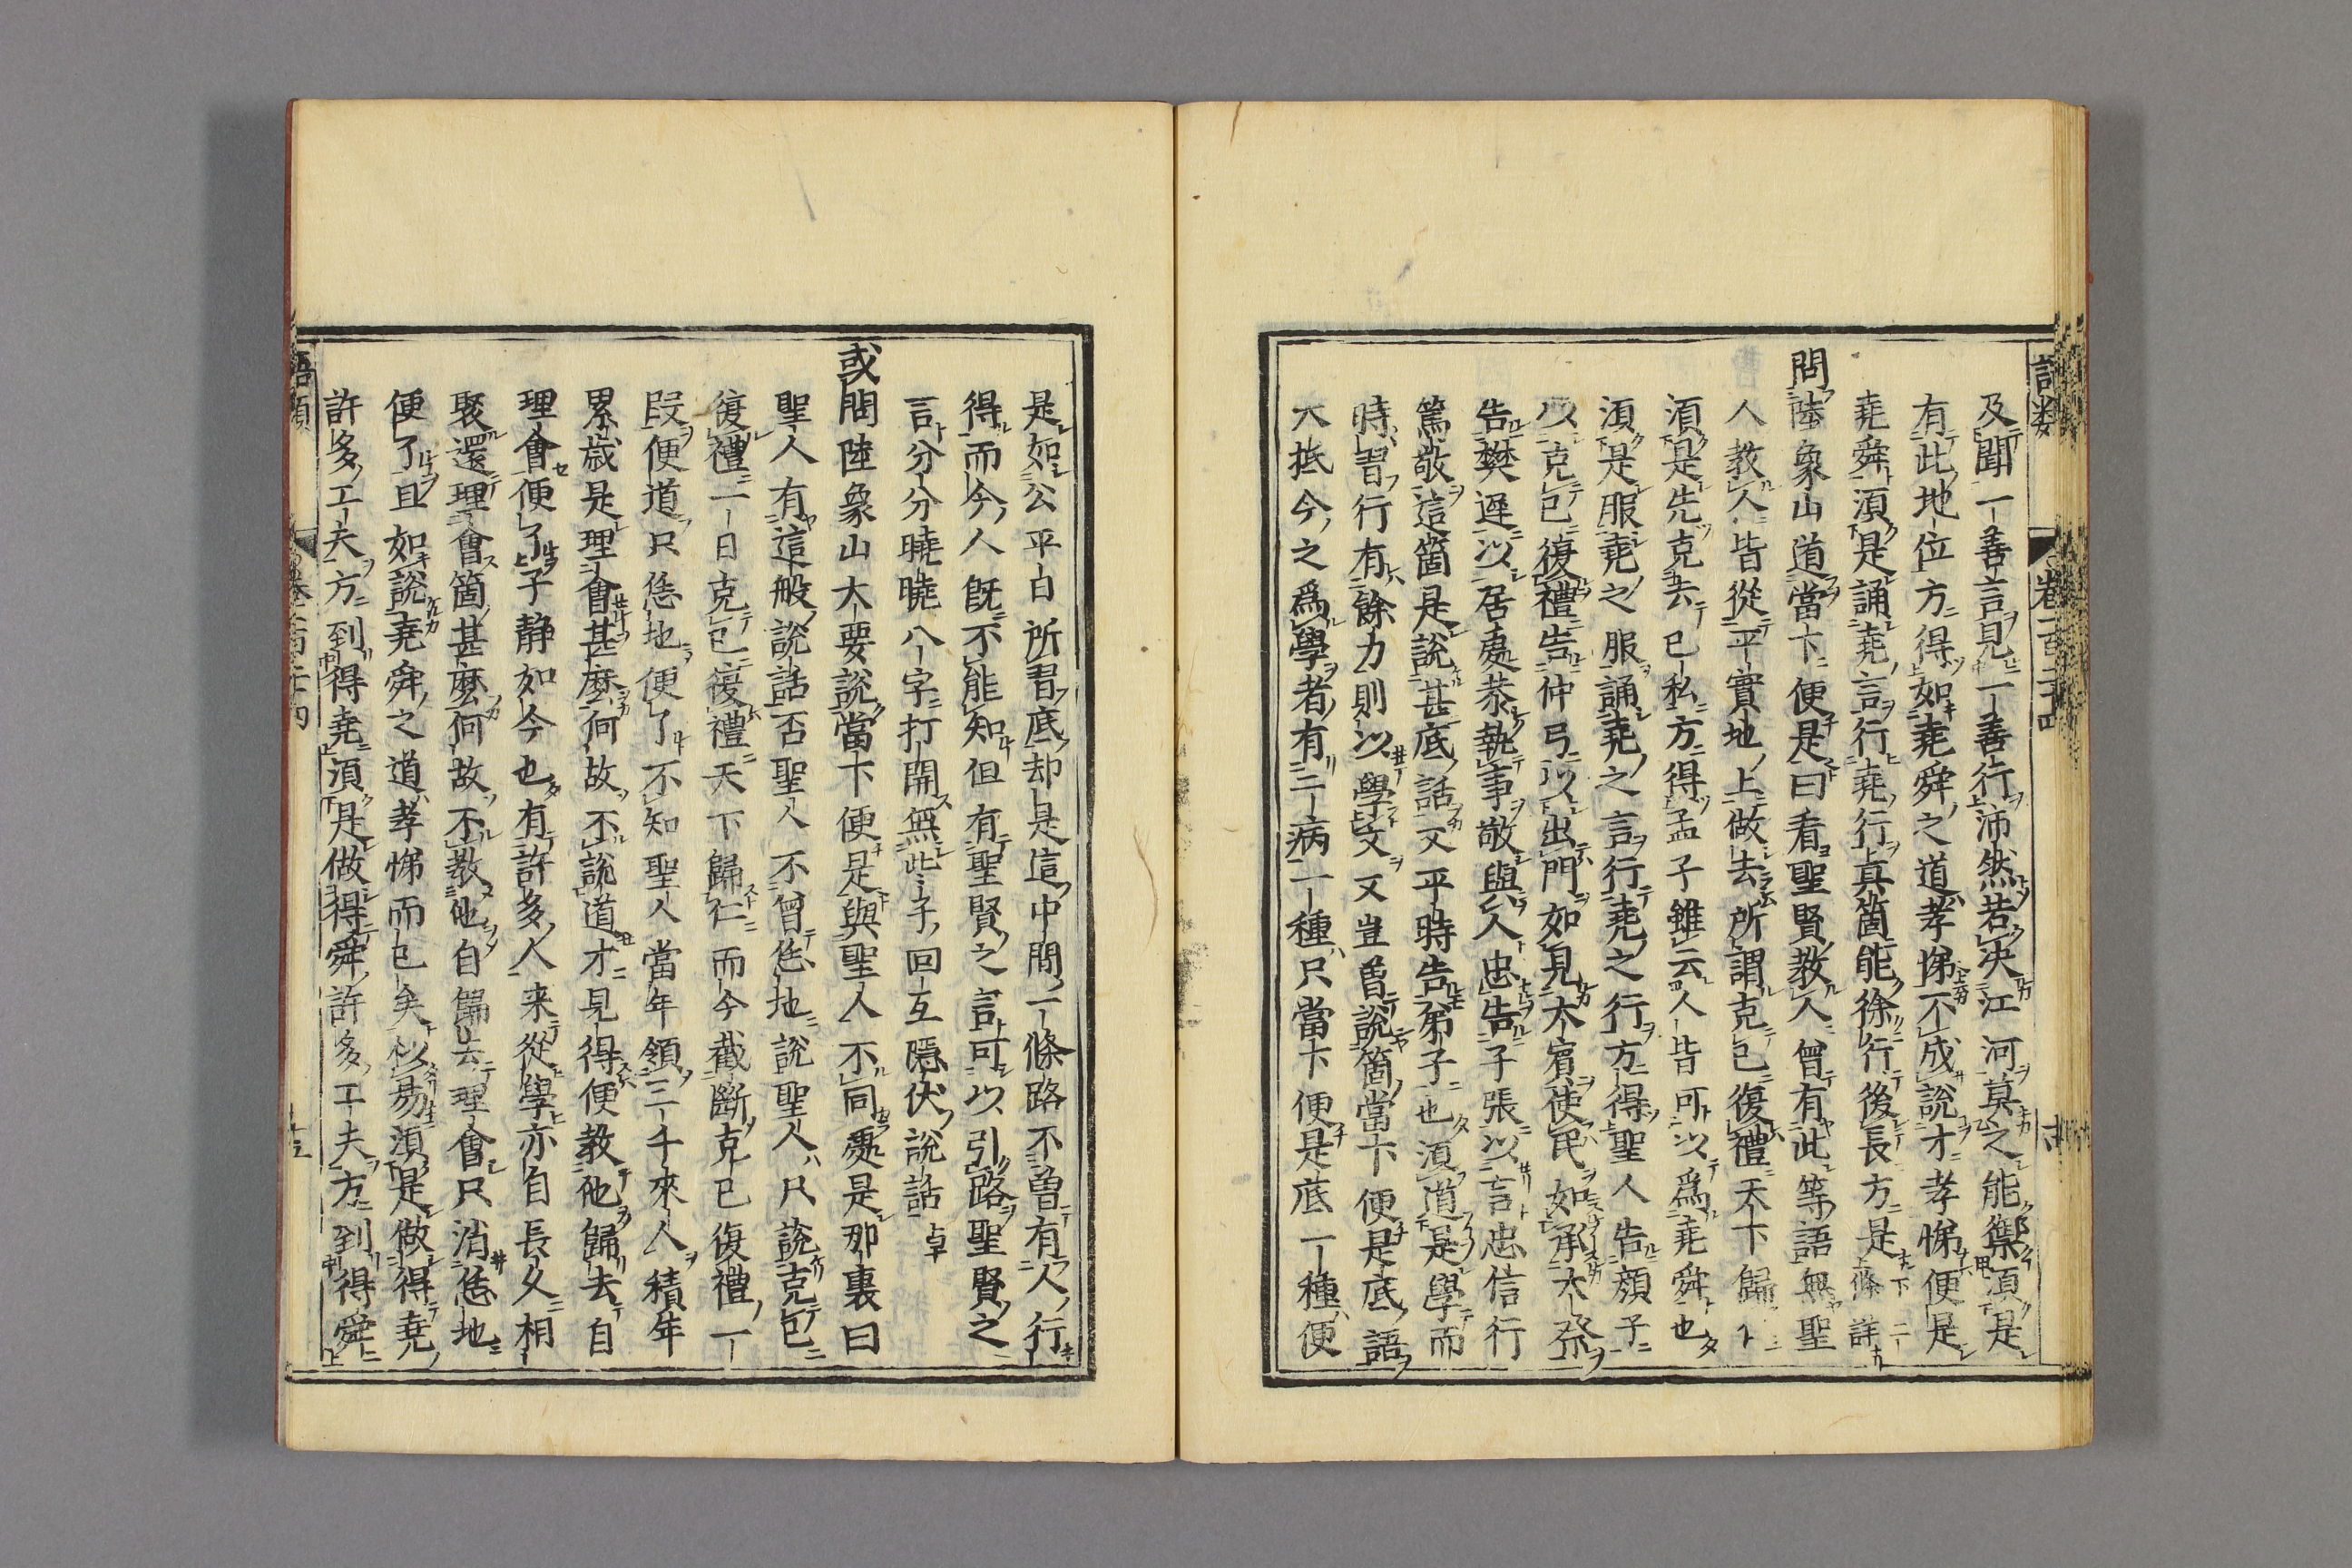 及聞一善言見一善行沛然若决江河莫之能禦湏是
有此地位方得如堯舜之道孝悌不成說才孝悌便是
堯舜湏是誦堯言行堯行真箇能徐行後長方是下二條詳
問陸象山道當下便是曰看聖賢教人曾有此等語無聖
人教人皆從平實地上做去所謂克己復禮天下歸仁
湏是先克去己私方得孟子雖云人皆可以爲堯舜也
湏是服堯之服誦堯之言行堯之行方得聖人告顏子
以克己復禮告仲弓以出門如見大賓使民如承大祭
告樊遲以居處恭執事敬與人忠告子張以言忠信行
篤敬這箇是說甚底話又平時告弟子也湏道是學而
時習行有餘力則以學文又豈曾說箇當下便是底語
大抵今之爲學者有二病一種只當下便是底一種便
是如公平日所習底却是這中間一條路不曾有人行
得而今人旣不能知但有聖賢之言可以引路聖賢之
言分分曉曉八字打開無些子回互隱伏說話 卓
或問陸象山大要說當下便是與聖人不同處是那裏曰
聖人有這般說話否聖人不曾恁地說聖人只說克己
復禮一日克己復禮天下歸仁而今截斷克己復禮一
段便道只恁地便了不知聖人當年領三千來人積年
累歲是理會甚麽何故不說道才見得便教他歸去自
理會便了子靜如今也有許多人来從學亦自長久相
聚還理會箇甚麽何故不教他自歸去理會只消恁地
便了且如說堯舜之道孝悌而已矣似易湏是做得堯
許多工夫方到得堯湏是做得舜許多工夫方到得舜